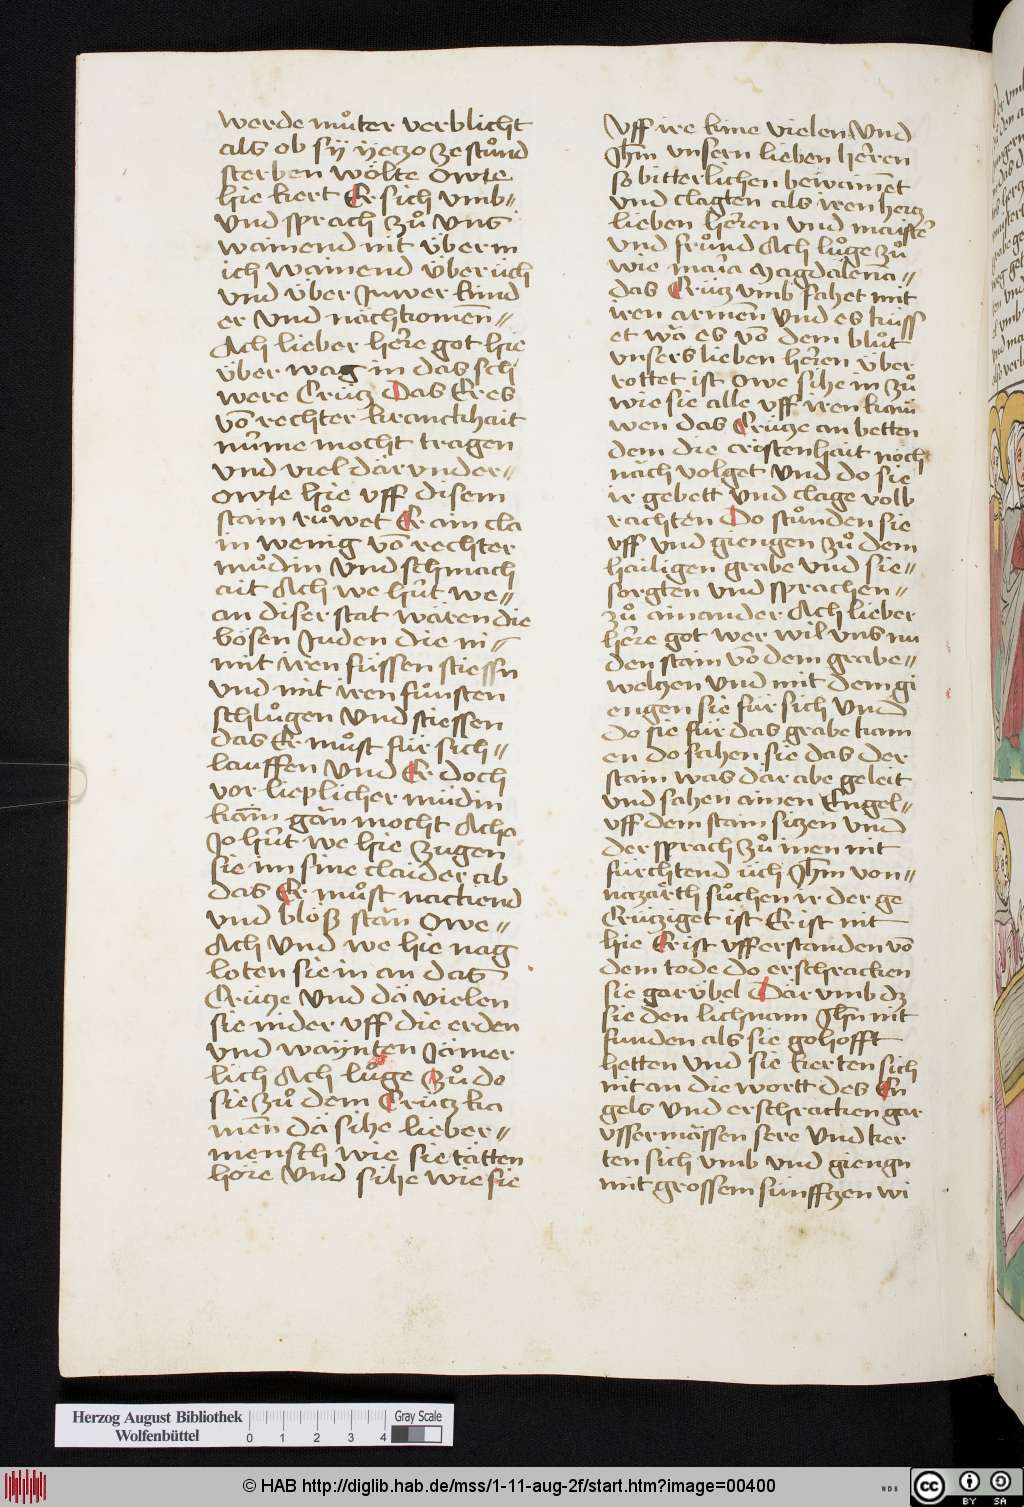 werde muͦter verblicht
als ob sÿ ÿeczo ze stuͦnd
sterben wölte Owie
hie kert Er sich vmb〃
vnd sprach zuͦ vns
wainend nit über in
ich wainend über üch
vnd über Juwer kind
er vnd nachkomen〃
Ach lieber herre got hie
über wag in das sch
were Crücz Das Er es
vō rechter kranckhait
nüme mocht tragen
vnd viel där vnder〃
Owie hie vff disem
stain ruͦwet Er ain cla
in wenig vō rechter
muͦdin vnd schmach
ait Ach we hüt we〃
an diser stat wären die
bösen Juden die in〃
mit iren füssen stiessn
vnd mit iren fünsten
schluͦgen vnd stiessen
das Er muͦst für sich〃
lauffen vnd Er doch
vor lieplicher müdin
kām gän mocht Ach
Jo hüt we hie zugen
sie im sine claider ab
das Er muͦst nackend
vnd bloß stän Owe〃
Ach vnd we hie nag
loten sie in an das
Crücze vnd dä vielen
sie nider vff die erden
vnd waÿnten Jämer
lich Ach luͦge zuͦ do
sie zuͦ dem Crücz ka
men dä sihe lieber〃
mensch wie sie tätten
höre vnd sihe wie sie
vff ire knie vielen vnd
Jhm vnsern lieben herren
so bitterlichen bewainet
vnd clagten als iren hercz
lieben herren vnd maister
vnd fründ Ach luͦge zuͦ
wie maria Magdalena〃
das Crücz vmb fahet mit
iren armen vnd es küss
et wä es vō dem bluͦt
vnsers lieben herren über
rottet ist Owe sihe in zuͦ
wie sie alle vff iren knü
wen das Crücze an betten
dem die cristenhait noch
näch volget vnd do sie
ir gebett vnd clage volb
rachten Do stuͦnden sie
vff vnd giengen zuͦ dem
hailigen grabe vnd sie〃
sorgten vnd sprachen〃
zuͦ ainander Ach lieber
herre got wer wil vns nu
den stain vō dem grabe〃
welczen vnd mit dem gi
engen sie für sich vnd
do sie für das grabe kam
en do sahen sie das der
stain was där abe geleit
vnd sahen ainen Engel〃
vff dem stain siczen vnd
der sprach zuͦ inen nit
fürchtend üch Jhm von〃
nazareth suͦchen ir der ge
Crücziget ist Er ist nit
hie Er ist vff erstanden vō
dem tode do erschracken
sie gar übel Där vmb dz
sie den lichnam Jhm nit
funden als sie gehofft
hetten vnd sie kerten sich
nit an die wortt des En
gels vnd erschracken gar
vsser mässen sere vnd ker
ten sich vmb vnd giengn
mit grossem sünffczen wi
Herzog August Bibliothek
Wolfenbüttel
0 1 2 3 4
Gray Scale
© HAB http://diglib.hab.de/mss/1-11-aug-2f/start.htm?image=00400
WDB
cc BY SA